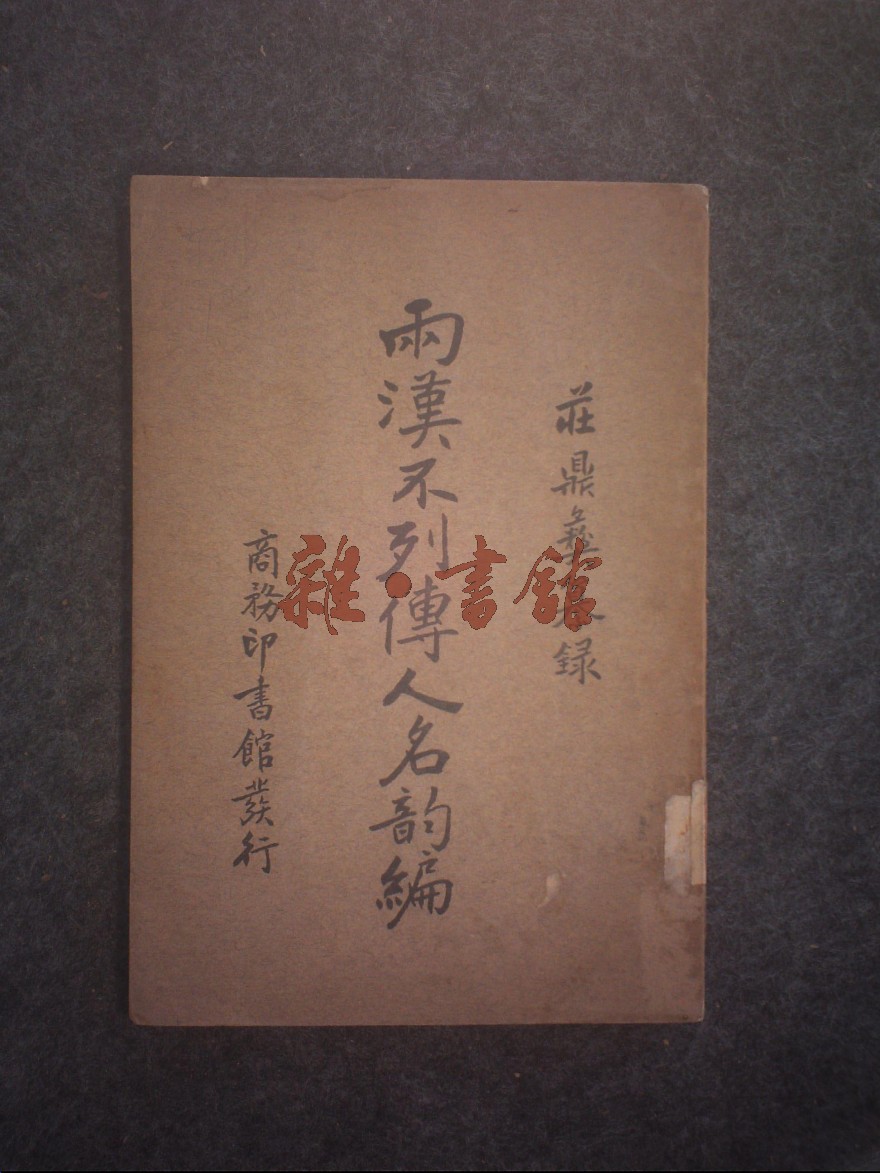 莊鼎彝錄
兩漢不列傳人名韵編
商務印書館發行
雜·書館